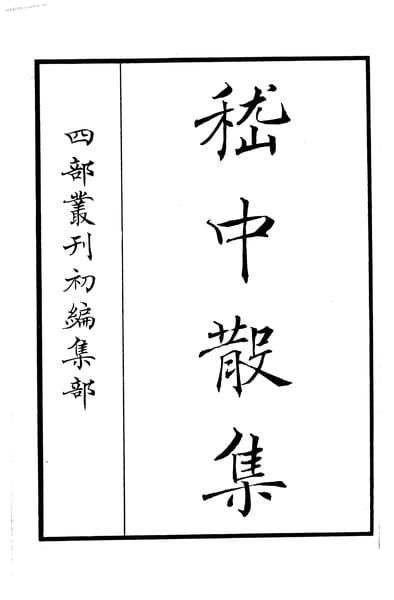 嵇中散集
四部叢刊初編集部